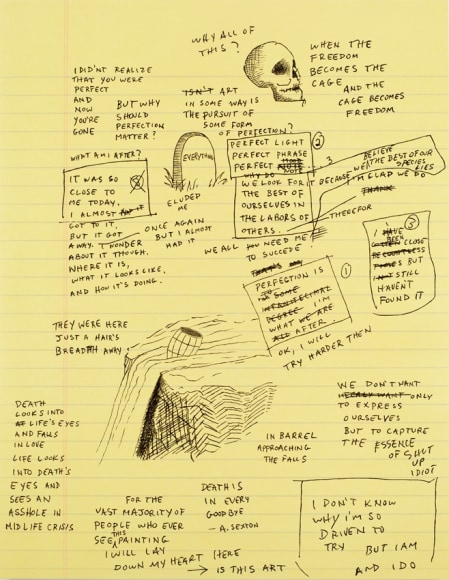 WHY ALL OF
THIS?
I DID'NT REALIZE
THAT YOU WERE
PERFECT
AND
NOW
YOU'RE
GONE
BUT WHY
SHOULD
PERFECTION
MATTER?
ISN'T ART
IN SOME WAY IS
THE PURSUIT OF
SOME FORM
OF PERFECTION?
WHEN THE
FREEDOM
BECOMES THE
CAGE AND THE
CAGE BECOMES
FREEDOM
WHAT AM I AFTER?
IT WAS SO
CLOSE TO
ME TODAY.
I ALMOST
GOT TO IT.
BUT IT GOT
AWAY. I WONDER
ABOUT IT THOUGH.
WHERE IT IS,
WHAT IT LOOKS LIKE,
AND HOW IT'S DOING.
EVERYTHING
ELUDED
ME
ONCE AGAIN
BUT I ALMOST
HAD IT
2
PERFECT LIGHT
PERFECT PHRASE
PERFECT NOTE
WHY DO
WE LOOK FOR IT BECAUSE
THE BEST OF
OURSELVES IN
THE LABORS OF
OTHERS.
3
BELIEVE
IN THE BEST OF OUR
SPECIES
I'M GLAD WE DO
THANK
THEREFOR
WE ALL YOU NEED ME
TO SUCCEDE
3
I HAVE
BEEN CLOSE
COUNTLESS
TIMES BUT
STILL
HAVEN'T
FOUND IT
1
PERFECTION IS
SOME
INFINITESIMAL
DEGREE I'M
WHAT WE ARE
ALL AFTER.
OK, I WILL
TRY HARDER THEN
THEY WERE HERE
JUST A HAIR'S
BREADTH AWAY.
DEATH
LOOKS INTO
LIFE'S EYES
AND FALLS
IN LOVE
LIFE LOOKS
INTO DEATH'S
EYES AND
SEES AN
ASSHOLE IN
MIDLIFE CRISIS
WE DON'T WANT
MERELY WANT ONLY
TO EXPRESS
OURSELVES
BUT TO CAPTURE
THE ESSENCE
OF SHUT
UP
IDIOT
IN BARREL
APPROACHING
THE FALLS
FOR THE
VAST MAJORITY OF
PEOPLE WHO EVER
SEE THIS PAINTING
I WILL LAY
DOWN MY HEART HERE
→ IS THIS ART
DEATH IS
IN EVERY
GOODBYE
- A. SEXTON
I DON'T KNOW
WHY I'M SO
DRIVEN TO
TRY BUT I AM
AND I DO